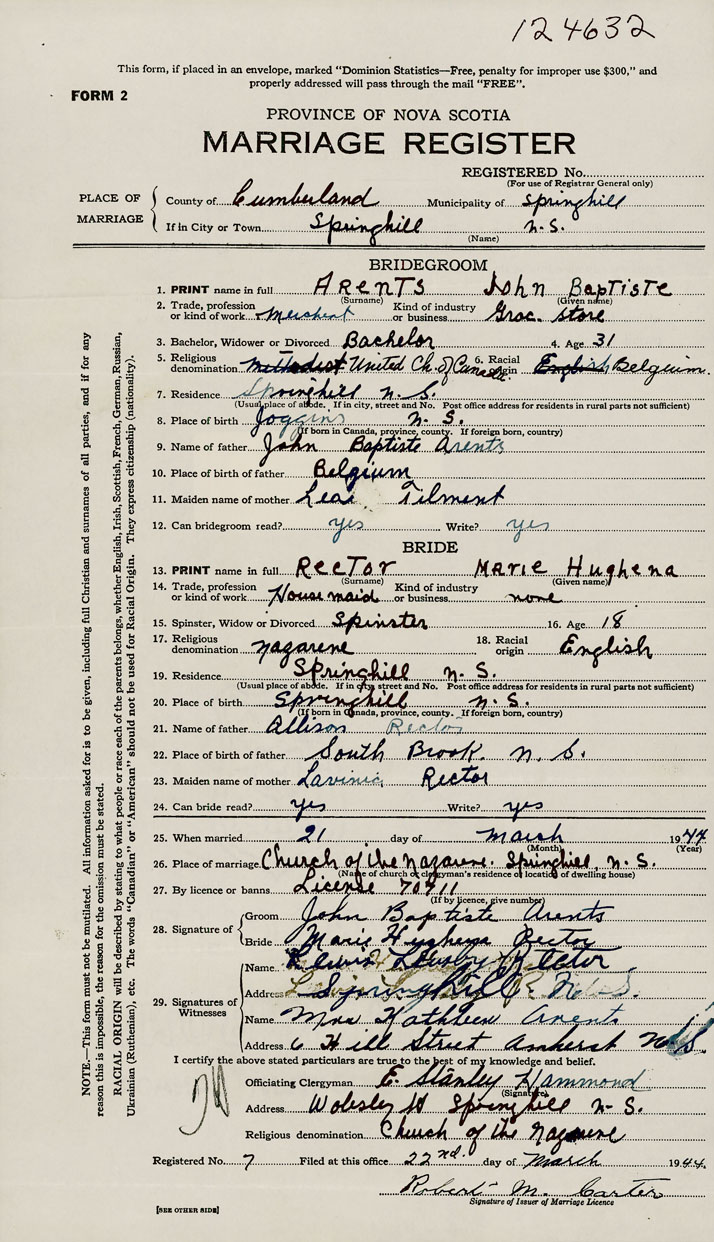 124632
This form, if placed in an envelope, marked "Dominion Statistics—Free, penalty for improper use $300," and
properly addressed will pass through the mail "FREE".
FORM 2
PROVINCE OF NOVA SCOTIA
MARRIAGE REGISTER
REGISTERED No.
(For use of Registrar General only)
PLACE OF MARRIAGE
County of Cumberland Municipality of Springhill
If in City or Town Springhill N.S.
(Name)
BRIDEGROOM
1. PRINT name in full ARENTS John Baptiste
(Surname) (Given name)
2. Trade, profession or kind of work Merchant Kind of industry or business Groc. store
3. Bachelor, Widower or Divorced Bachelor 4. Age 31
5. Religious denomination Methodist United Ch. of Canada 6. Racial origin English Belgium.
7. Residence Springhill N.S.
(Usual place of abode. If in city, street and No. Post office address for residents in rural parts not sufficient)
8. Place of birth Joggins N.S.
(If born in Canada, province, county. If foreign born, country)
9. Name of father John Baptiste Arents
10. Place of birth of father Belgium
11. Maiden name of mother Leai Tilment
12. Can bridegroom read? yes Write? yes
BRIDE
13. PRINT name in full RECTOR MARIE Hughena
(Surname) (Given name)
14. Trade, profession or kind of work Housemaid Kind of industry or business none
15. Spinster, Widow or Divorced Spinster 16. Age 18
17. Religious denomination Nazarene 18. Racial origin English
19. Residence Springhill N.S.
(Usual place of abode. If in city street and No. Post office address for residents in rural parts not sufficient)
20. Place of birth Springhill N.S.
(If born in Canada, province, county. If foreign born, country)
21. Name of father Allison Rector
22. Place of birth of father South Brook. N.S.
23. Maiden name of mother Lavinia Rector
24. Can bride read? yes Write? yes
25. When married 21 day of March 1944
(Month) (Year)
26. Place of marriage Church of the Nazarene. Springhill, N.S.
(Name of church or clergyman's residence or location of dwelling house)
27. By licence or banns License 70711
(If by licence, give number)
28. Signature of
Groom John Baptiste Arents
Bride Marie Hughena Rector
29. Signatures of Witnesses
Name Rector
Address Springhill N.S.
Name Mrs Kathleen Arents
Address 6 Hill Street Amherst N.S.
I certify the above stated particulars are true to the best of my knowledge and belief.
Officiating Clergyman E. Stanley Hammond
(Signature)
Address Springhill N.S.
Religious denomination Church of the Nazarene
Registered No. 7 Filed at this office 22nd. day of March 1944.
Robert M. Carter
Signature of Issuer of Marriage Licence
[SEE OTHER SIDE]
NOTE.—This form must not be mutilated. All information asked for is to be given, including full Christian and surnames of all parties, and if for any
reason this is impossible, the reason for the omission must be stated.
RACIAL ORIGIN will be described by stating to what people or race each of the parents belongs, whether English, Irish, Scottish, French, German, Russian,
Ukrainian (Ruthenian), etc. The words "Canadian" or "American" should not be used for Racial Origin. They express citizenship (nationality).